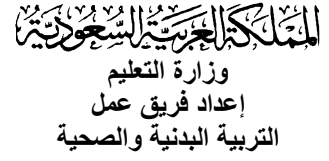 المملكة العربية السعودية
وزارة التعليم
إعداد فريق عمل
التربية البدنية والصحية